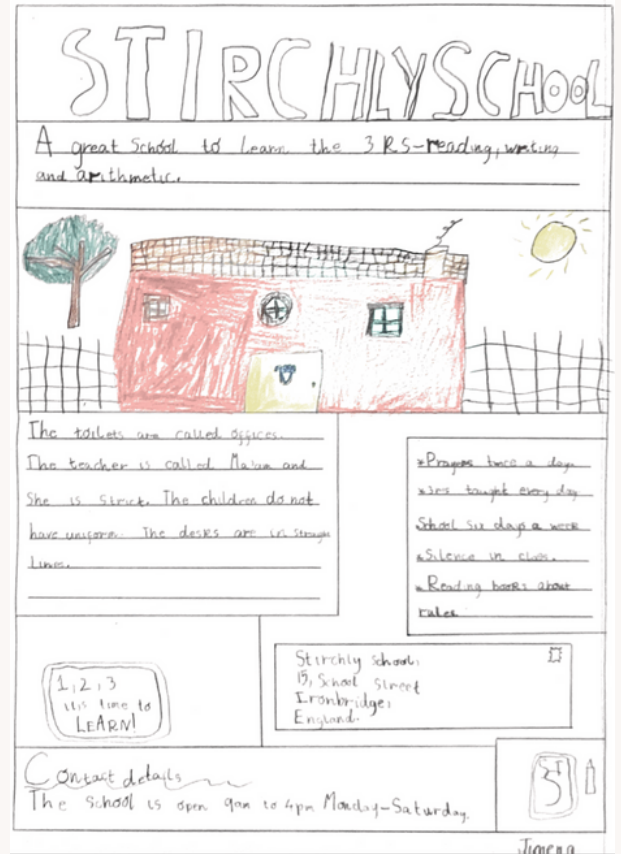 STIRCHLYSCHOOL
A great School to learn the 3 RS-reading, writing
and arithmetic.
The toilets are called offices.
The teacher is called Ma'am and
She is Strict. The children do not
have uniform. The desks are in straight
Lines.
*Prayers twice a day
*3rs taught every day
School Six days a week
*Silence in class.
*Reading books about
rules
1,2,3
it is time to
LEARN!
Stirchly School,
15, School Street
Ironbridge,
England.
Contact details
The School is open 9am to 4pm Monday-Saturday.
Jimena